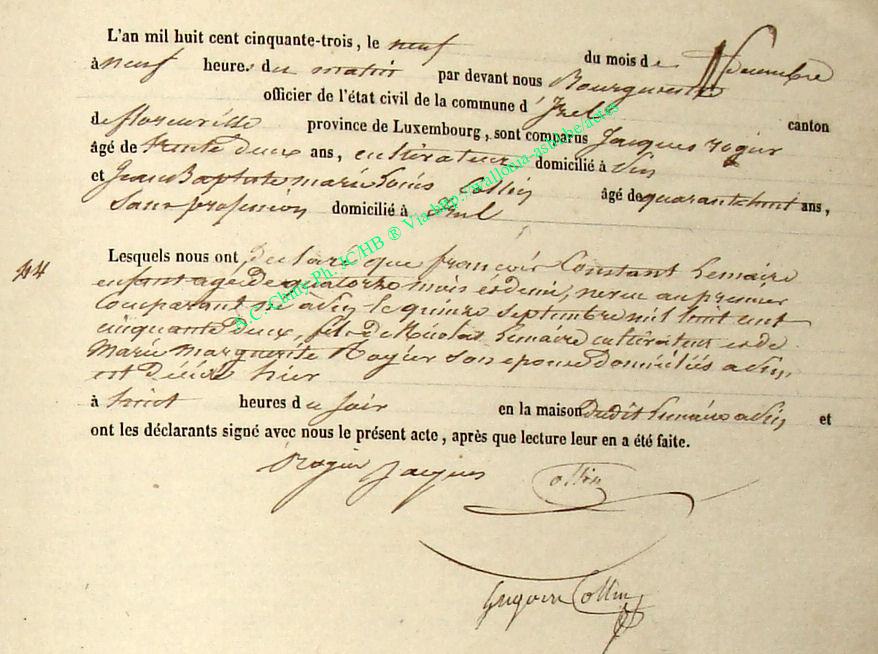 L'an mil huit cent cinquante-trois, le neuf du mois de Decembre
à neuf heures du matin par devant nous Bourgmestre
officier de l'état civil de la commune d'Izel canton
de florenville province de Luxembourg, sont comparus Jacques rogier
âgé de trente deux ans, cultivateur domicilié à
et Jean Baptiste marie Louis Collin âgé de quarante huit ans,
Sans profession domicilié à Izel
44
Lesquels nous ont declaré que françois Constant Lemaire
enfant agé de quatorze mois et demi, neveu au premier
Comparant né à le quinze septembre mil huit cent
cinquante deux, fils de Nicolas Lemaire cultivateur et de
Marie marguerite Rogier son epouse domiciliés a
est décédé hier
à huit heures du soir en la maison dudit Lemaire a et
ont les déclarants signé avec nous le présent acte, après que lecture leur en a été faite.
Rogier Jacques Collin
Gregoire Collin
A.C. Chiny Ph. JC/HB ® Via http://wallonia-asbl.be/actes